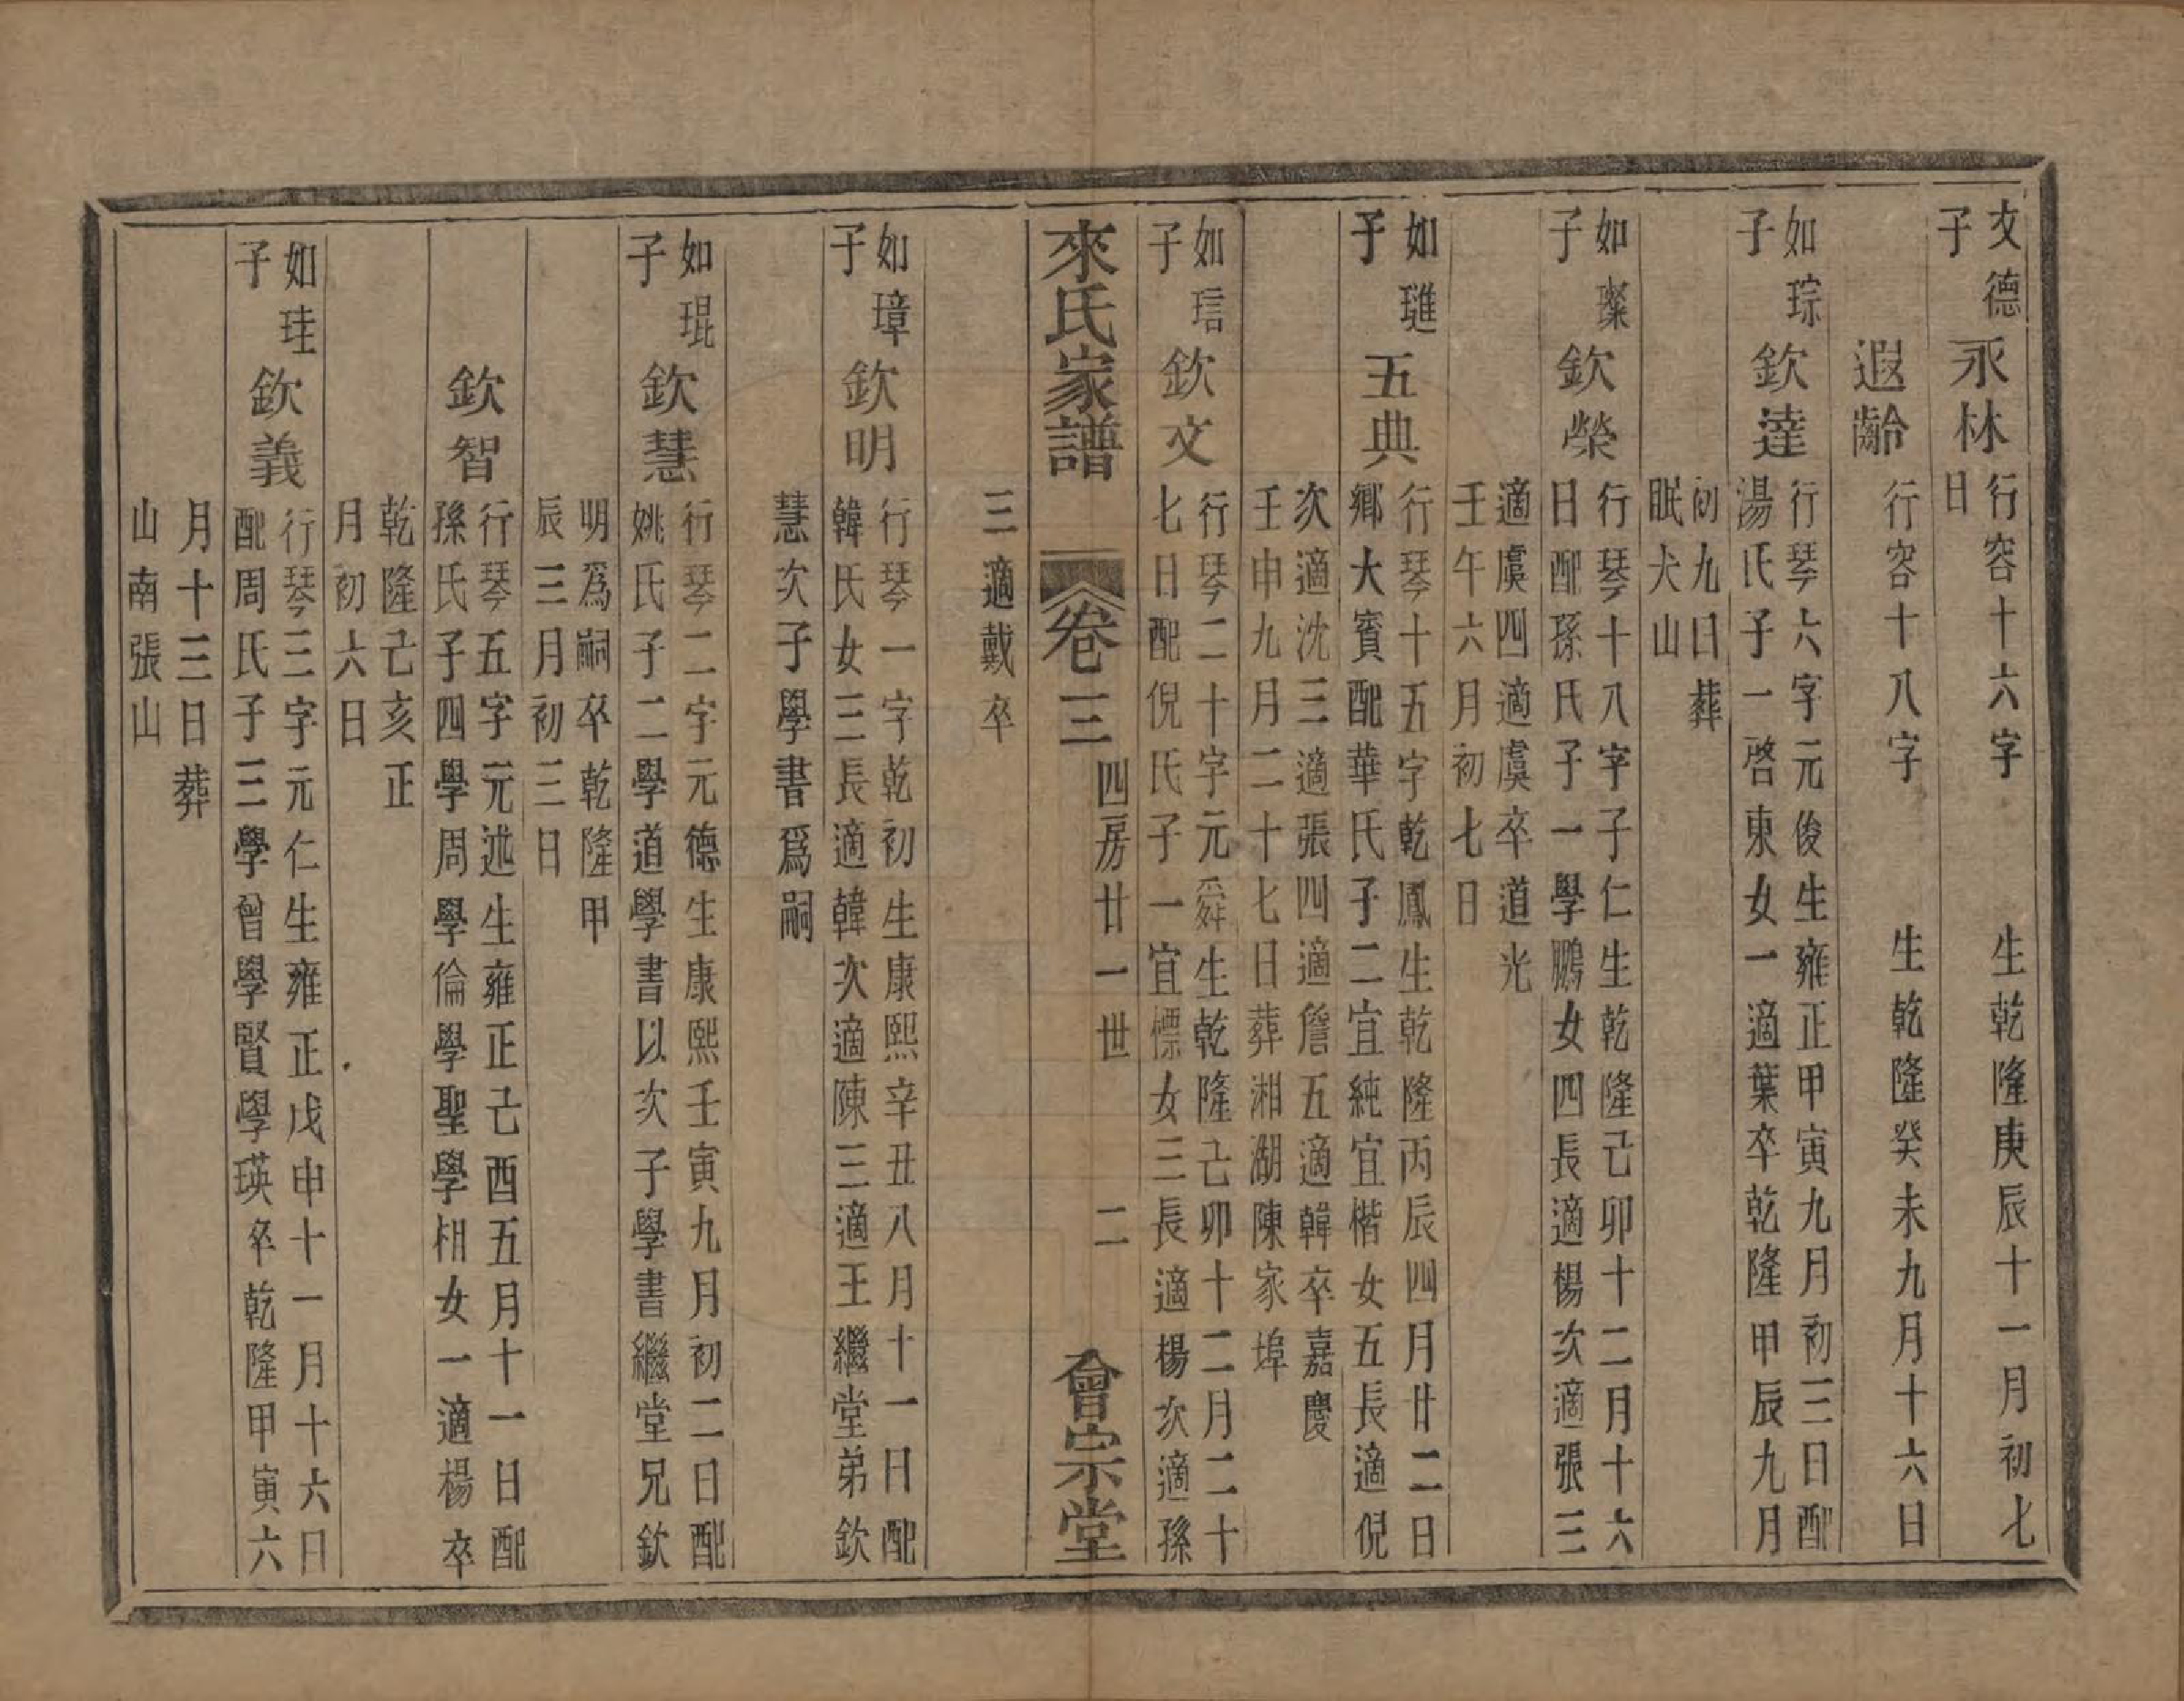 文德
子
永林
行容十六字　生乾隆庚辰十一月初七
日
遐齡
行容十八字　生乾隆癸未九月十六日
如琮
子
欽達
行琴六字元俊生雍正甲寅九月初三日配
湯氏子一啓東女一適葉卒乾隆甲辰九月
初九日葬
眠犬山
如璨
子
欽榮
行琴十八字子仁生乾隆己卯十二月十六
日配孫氏子一學鵬女四長適楊次適張三
適虞四適虞卒道光
壬午六月初七日
如璡
子
五典
行琴十五字乾鳳生乾隆丙辰四月廿二日
鄉大賓配華氏子二宜純宜楷女五長適倪
次適沈三適張四適詹五適韓卒嘉慶
壬申九月二十七日葬湘湖陳家埠
如琂
子
欽文
行琴二十字元舜生乾隆己卯十二月二十
七日配倪氏子一宜慓女三長適楊次適孫
來氏家譜　卷三　四房廿一世　二　會宗堂
三適戴卒
如璋
子
欽明
行琴一字乾初生康熙辛丑八月十一日配
韓氏女三長適韓次適陳三適王繼堂弟欽
慧次子學書爲嗣
如琨
子
欽慧
行琴二字元德生康熙壬寅九月初二日配
姚氏子二學道學書以次子學書繼堂兄欽
明爲嗣卒乾隆甲
辰三月初三日
欽智
行琴五字元述生雍正己酉五月十一日配
孫氏子四學周學倫學聖學相女一適楊卒
乾隆己亥正
月初六日
如珪
子
欽義
行琴三字元仁生雍正戊申十一月十六日
配周氏子三學曾學賢學瑛卒乾隆甲寅六
月十三日葬
山南張山